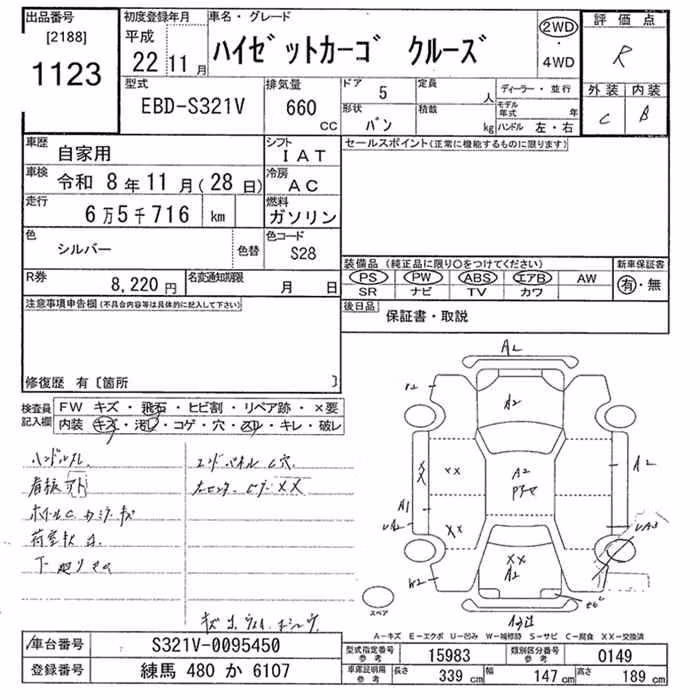 出品番号
[2188]
1123
初度登録年月
平成
22 11月
車名・グレード
ハイゼットカーゴ クルーズ
2WD
・
4WD
評価点
R
外装 内装
C B
型式
EBD-S321V
排気量
660
CC
ドア 5
定員 人
ディーラー・並行
形状
バン
積載 kg
モデル年式 年
ハンドル 左・右
車歴
自家用
シフト
IAT
車検 令和 8年11月(28日)
冷房
AC
走行
6万5千716 km
燃料
ガソリン
色
シルバー
色替
色コード
S28
R券
8,220円
名変通知期限
月 日
セールスポイント(正常に機能するものに限ります)
装備品 (純正品に限り〇をつけてください)
新車保証書
PS PW ABS エアB AW
SR ナビ TV カワ
有・無
後日品
保証書・取説
注意事項申告欄(不具合内容等は具体的に記入して下さい)
修復歴 有〔箇所 〕
検査員
記入欄
FW キズ・飛石・ヒビ割・リペア跡・×要
内装 キズ・汚レ・コゲ・穴・スレ・キレ・破レ
ハンドルスレ
エンドパネル C穴
XX
A2
A2
A2
A2
XX
XX
XX
A1
XX
A2
W2
スペア
A-キズ E-エクボ U-凹み W-補修跡 S-サビ C-腐食 XX-交換済
車台番号
S321V-0095450
登録番号
練馬 480 か 6107
型式指定番号
参考
15983
類別区分番号
参考
0149
車庫証明用
参考
長さ
339 cm
幅
147 cm
高さ
189 cm